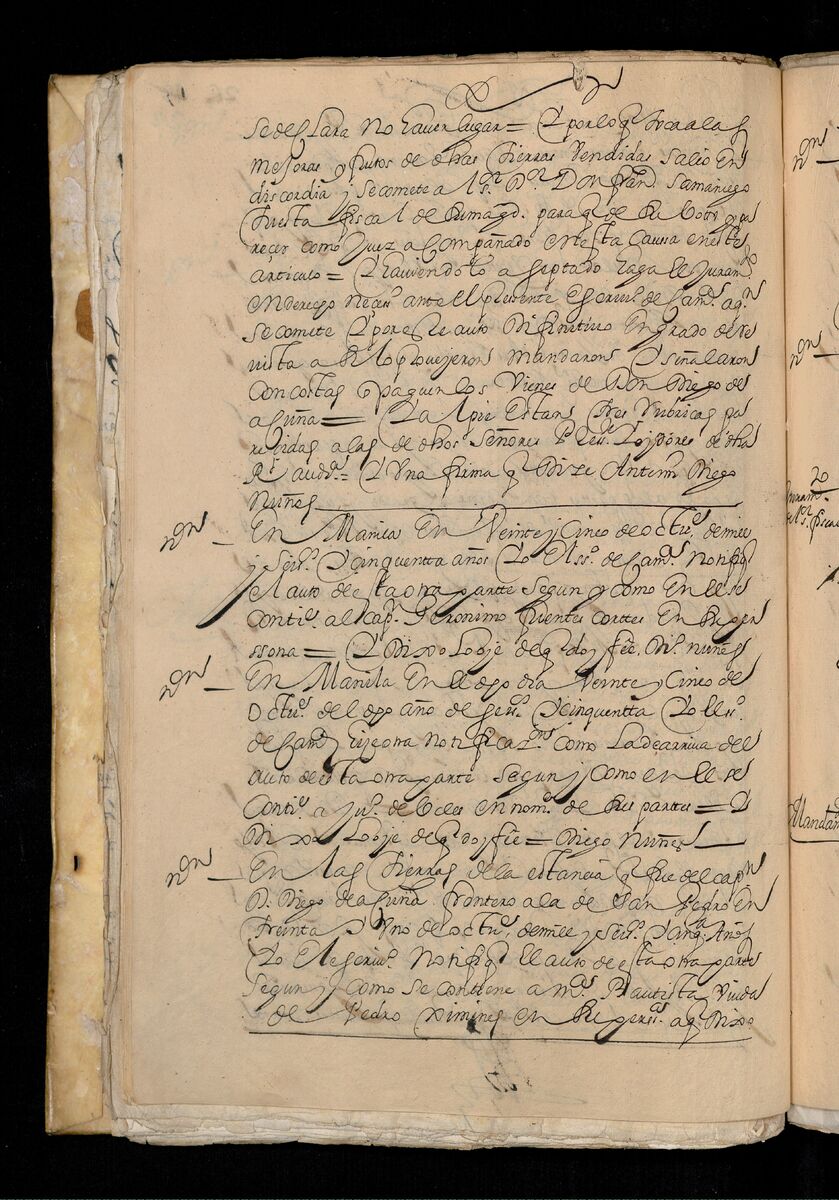 se declara No haver lugar = Y por lo q toca a las
mejoras y frutos de dhas tierras Vendidas salio En
discordia y se comete a l sr Dr Don Franco. Samaniego
tuesta fiscal de Su magd. para q de Su Voto y pa
reçer como Juez acompañado en esta causa en este
articulo = Y haviendolo aseptado haga el Juramto
En derecho neçesso. ante el presente Escrivo. de Camra. a qn
se comete Y por este auto Difinitivo En grado de Re
vista assi lo proveyeron mandaron Y señalaron
Con costas q paguen los Vienes de Don Diego de
acuña = Y al pie Estan tres Rubricas pa
reçidas a las de dhos Señores Presste. y oydores de dha
Rl audia. = Y Una firma q Dize Antemi Diego
Nuñes
Non En Manila En Veinte y Cinco de octue. de mill
y Seiso. Y cinquentta años Yo El sso. de Camra Notifiq
el auto de esta otra partte segun y como En el se
Contie. al Capn. Geronimo fuentes Corttes En Su per
ssona = Y Dixo Lo oye de q doy fee. Do. nuñes
Non En Manila En el dho dia Veinte y Cinco de
Octue. del dho año de seiso. Y cinquentta Yo el sso.
de Camra hize otra Notificazon como La de arriva del
auto de esta otra parte segun y como en el se
Contie. a Ju. de Ocles en nome. de sus parttes = Y
Dixo Lo oye de q doy fee = Diego Nuñes
Non En las tierras de la estancia q fue del capn
D. Diego de acuña frontero a la de San Pedro En
treinta Y Uno de octue. de mill y seiso. Y cinqta. Años
Yo El escrivo. Notifique El auto de esta otra parte
segun y como se contiene a ma. Bautista Viuda
de Pedro Ximines en Su perssa. a q Dixo